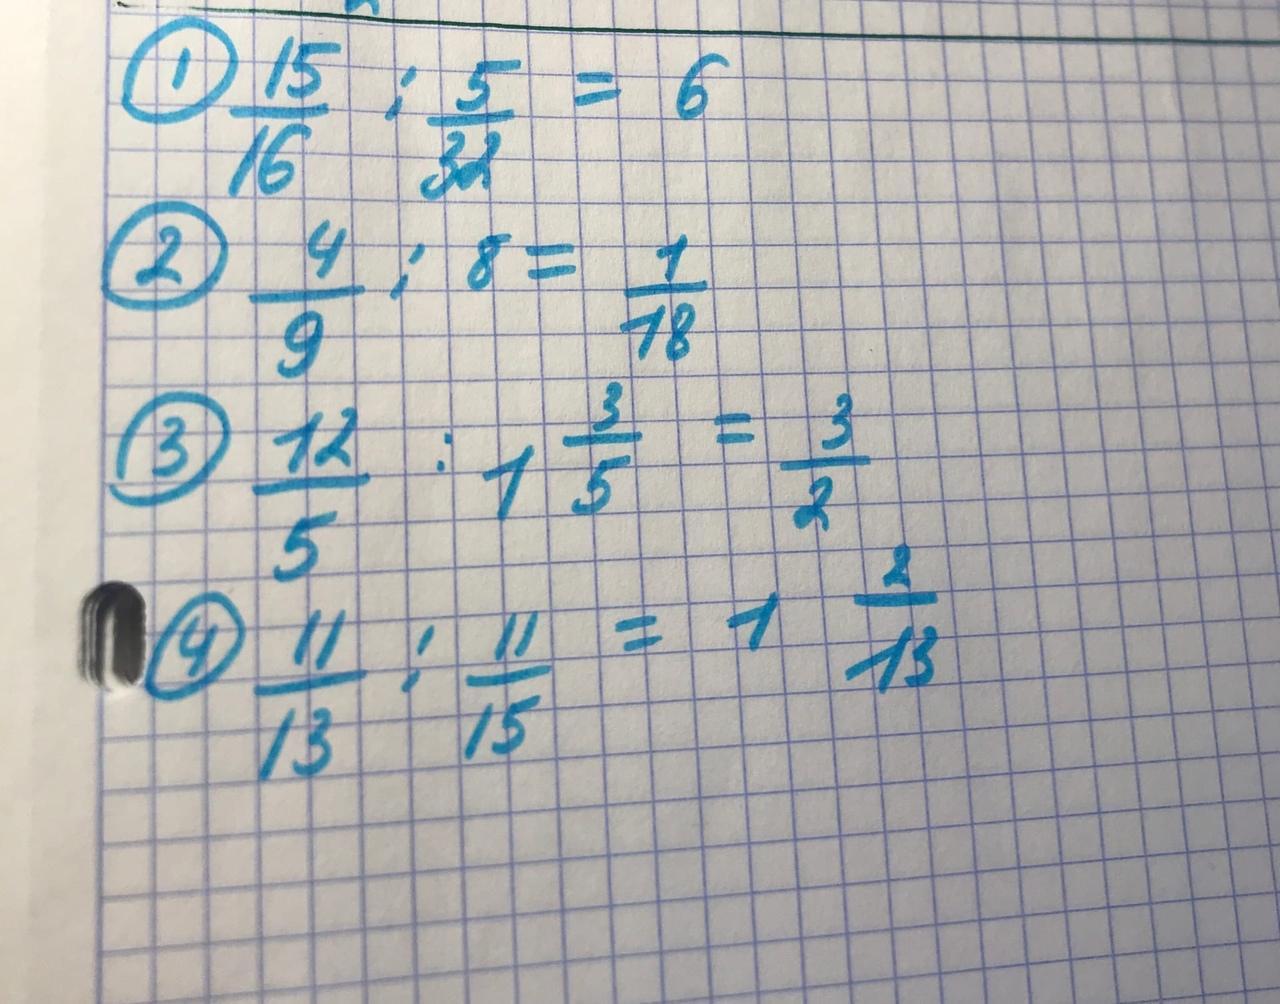 ① 15/16 : 5/32 = 6
② 4/9 : 8 = 1/18
③ 12/5 : 1 3/5 = 3/2
④ 11/13 : 11/15 = 1 2/13